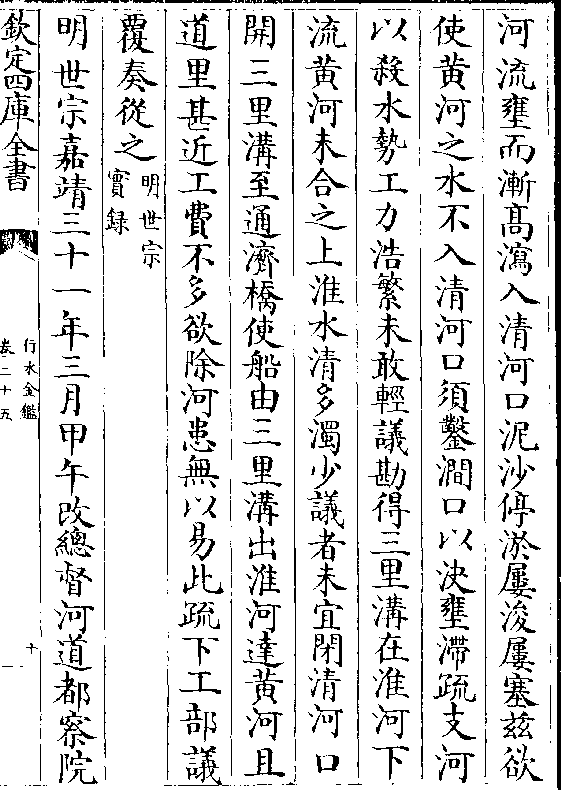 河流壅而漸高瀉入清河口泥沙停淤屢浚屢塞茲欲
使黄河之水不入清河口須鑿澗口以决壅滯疏支河
以殺水勢工力浩繁未敢輕議勘得三里溝在淮河下
流黄河未合之上淮水清多濁少議者未宜閉清河口
開三里溝至通濟橋使船由三里溝出淮河達黄河且
道里甚近工費不多欲除河患無以易此疏下工部議
覆奏從之明世宗
實録
明世宗嘉靖三十一年三月甲午改總督河道都察院
欽定四庫全書
行水金鑑
卷二十五
十